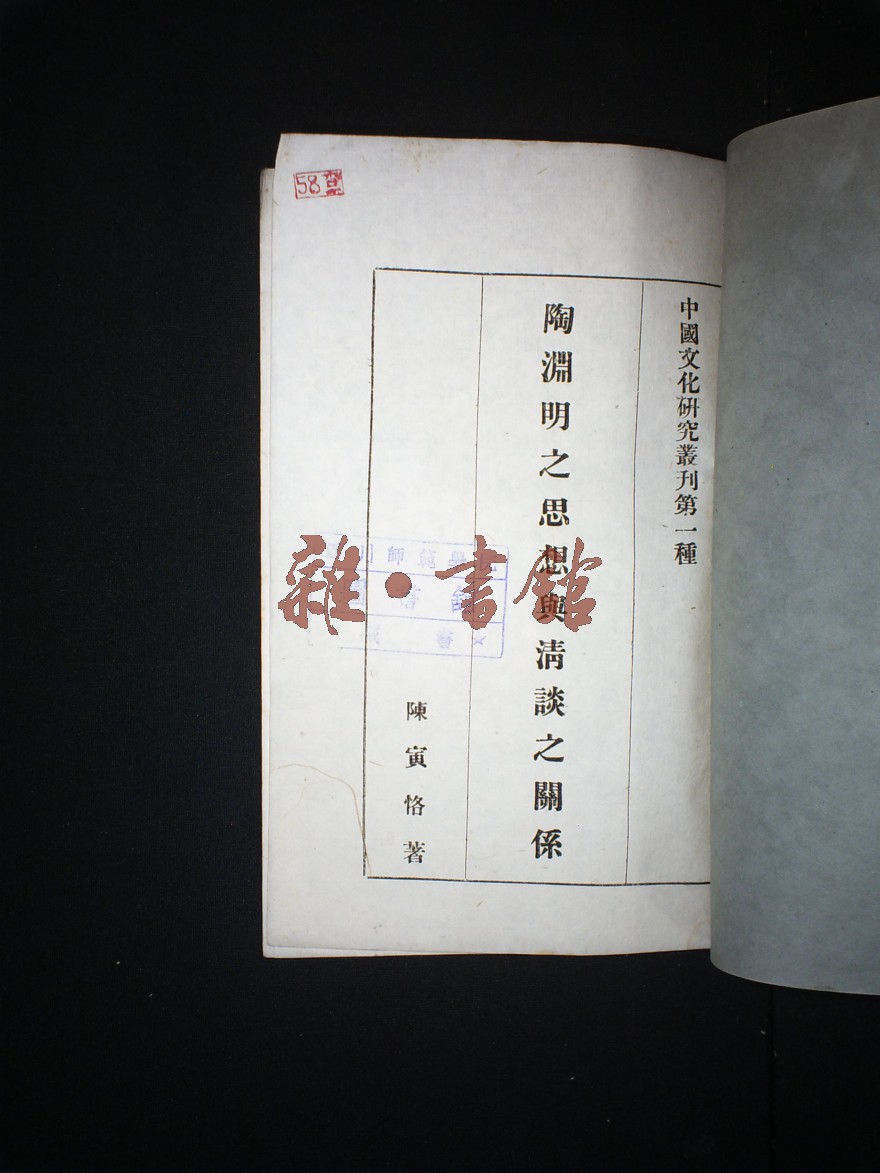 中國文化研究叢刊第一種
陶淵明之思想與清談之關係
陳寅恪著
58查
雜·書館
師範學院